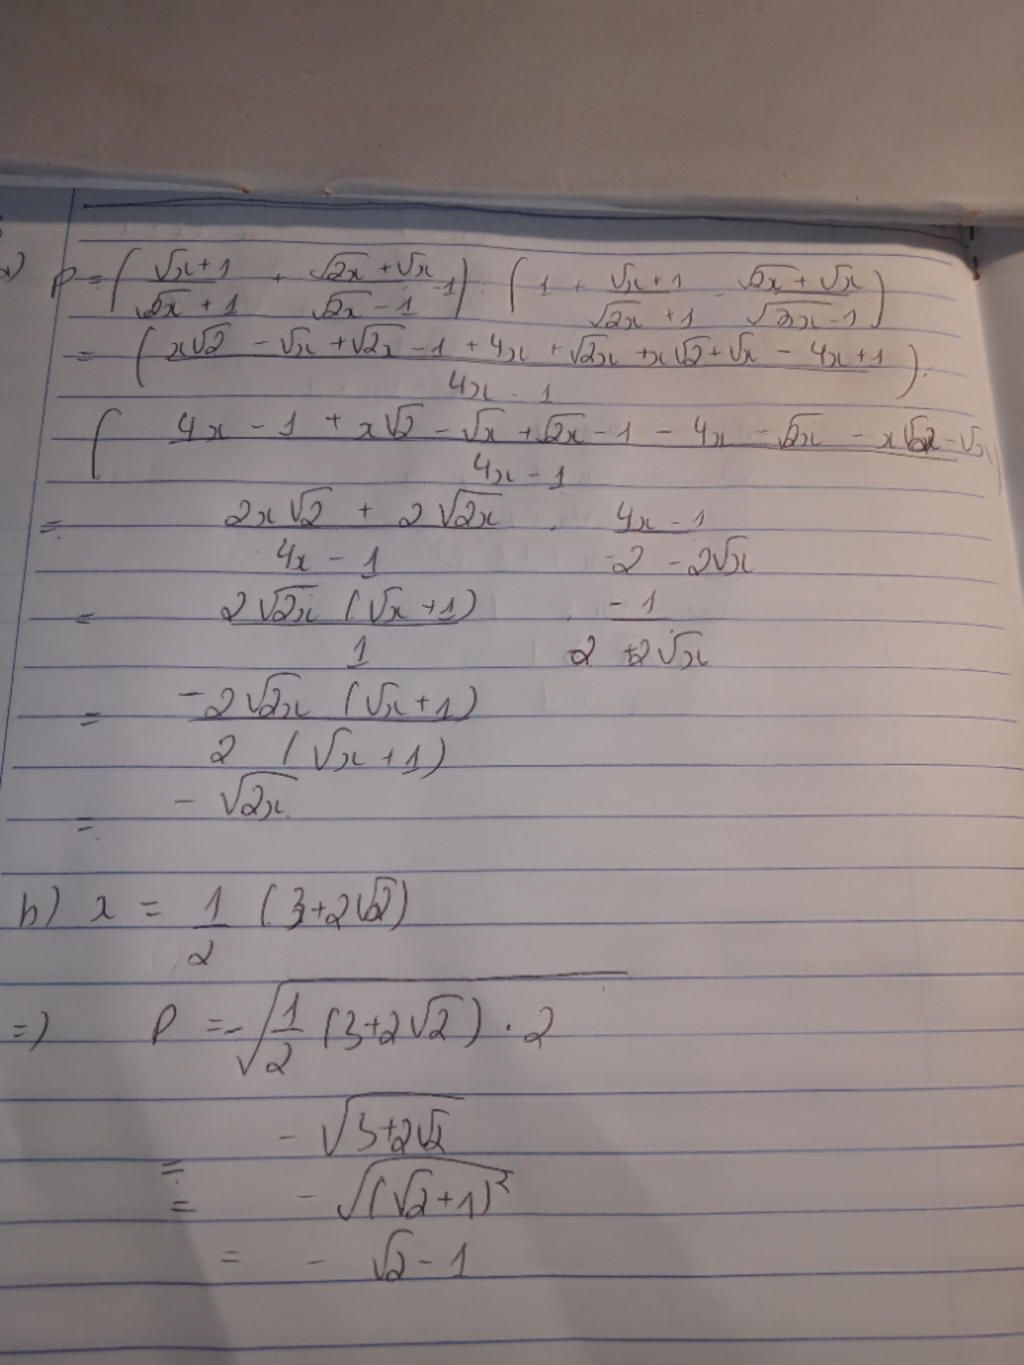 a) P = ( (√x + 1)/(√2x + 1) + (√2x + √x)/(√2x - 1) - 1 ) : ( 1 + (√x + 1)/(√2x + 1) - (√2x + √x)/(√2x - 1) )
= ( (x√2 - √x + √2x - 1 + 4x + √2x + x√2 + √x - 4x + 1)/(4x - 1) ) :
( (4x - 1 + x√2 - √x + √2x - 1 - 4x - √2x - x√2 - √x)/(4x - 1) )
= (2x√2 + 2√2x)/(4x - 1) . (4x - 1)/(-2 - 2√x)
= (2√2x (√x + 1))/1 . (-1)/(2 + 2√x)
= (-2√2x (√x + 1))/(2 (√x + 1))
= - √2x
b) x = 1/2 (3 + 2√2)
=> P = - √(1/2 (3 + 2√2) . 2)
= - √(3 + 2√2)
= - √((√2 + 1)²)
= - √2 - 1